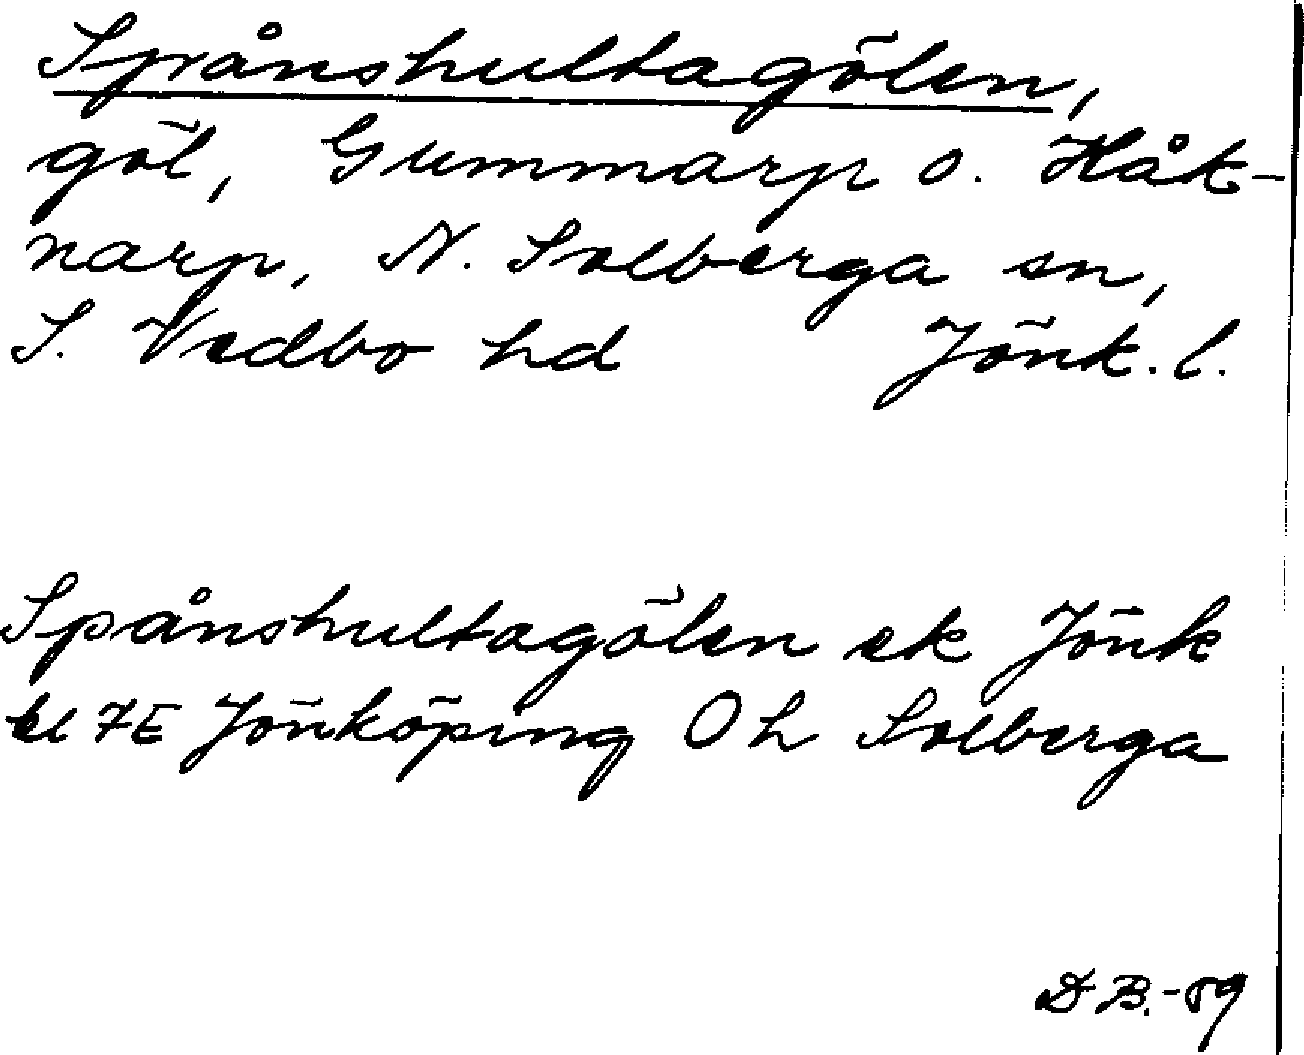 Spånshultagölen,
göl, Gummarp o. Håk-
narp, N. Solberga sn,
S. Vedbo hd Jönk. l.
Spånshultagölen ek Jönk
bl 7E Jönköping Oh Solberga
D B.-59